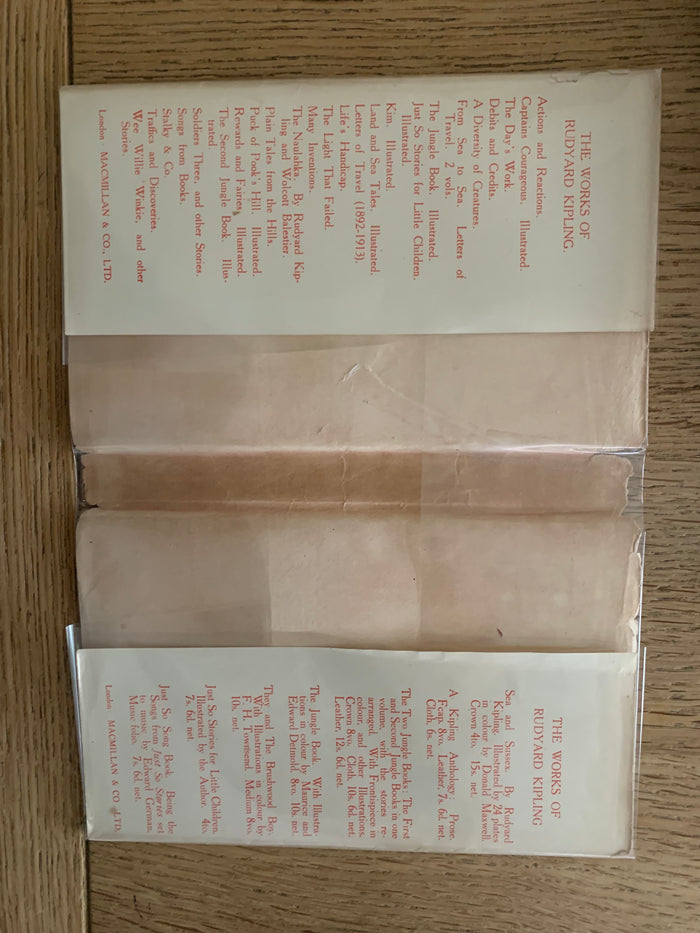 THE WORKS OF
RUDYARD KIPLING.
Actions and Reactions.
Captains Courageous. Illustrated.
The Day's Work.
Debits and Credits.
A Diversity of Creatures.
From Sea to Sea. Letters of
Travel. 2 vols.
The Jungle Book. Illustrated.
Just So Stories for Little Children.
Illustrated.
Kim. Illustrated.
Land and Sea Tales. Illustrated.
Letters of Travel (1892-1913).
Life's Handicap.
The Light That Failed.
Many Inventions.
The Naulahka. By Rudyard Kip-
ling and Wolcott Balestier.
Plain Tales from the Hills.
Puck of Pook's Hill. Illustrated.
Rewards and Fairies. Illustrated.
The Second Jungle Book. Illus-
trated.
Soldiers Three, and other Stories.
Songs from Books.
Stalky & Co.
Traffics and Discoveries.
Wee Willie Winkie, and other
Stories.
London · MACMILLAN & CO., LTD.
THE WORKS OF
RUDYARD KIPLING
Sea and Sussex. By Rudyard
Kipling. Illustrated by 24 plates
in colour by Donald Maxwell.
Crown 4to. 15s. net.
A Kipling Anthology: Prose.
Fcap. 8vo. Leather, 7s. 6d. net.
Cloth, 6s. net.
The Two Jungle Books: The First
and Second Jungle Books in one
volume, with the stories re-
arranged. With Frontispiece in
colour, and other Illustrations.
Crown 8vo. Cloth, 10s. 6d. net.
Leather, 12s. 6d. net.
The Jungle Book. With Illustra-
tions in colour by Maurice and
Edward Detmold. 8vo. 10s. net.
They and The Brushwood Boy.
With Illustrations in colour by
F. H. Townsend. Medium 8vo.
10s. net.
Just So Stories for Little Children.
Illustrated by the Author. 4to.
7s. 6d. net.
Just So Song Book. Being the
Songs from Just So Stories set
to music by Edward German.
Music folio. 7s. 6d. net.
London: MACMILLAN & CO., LTD.